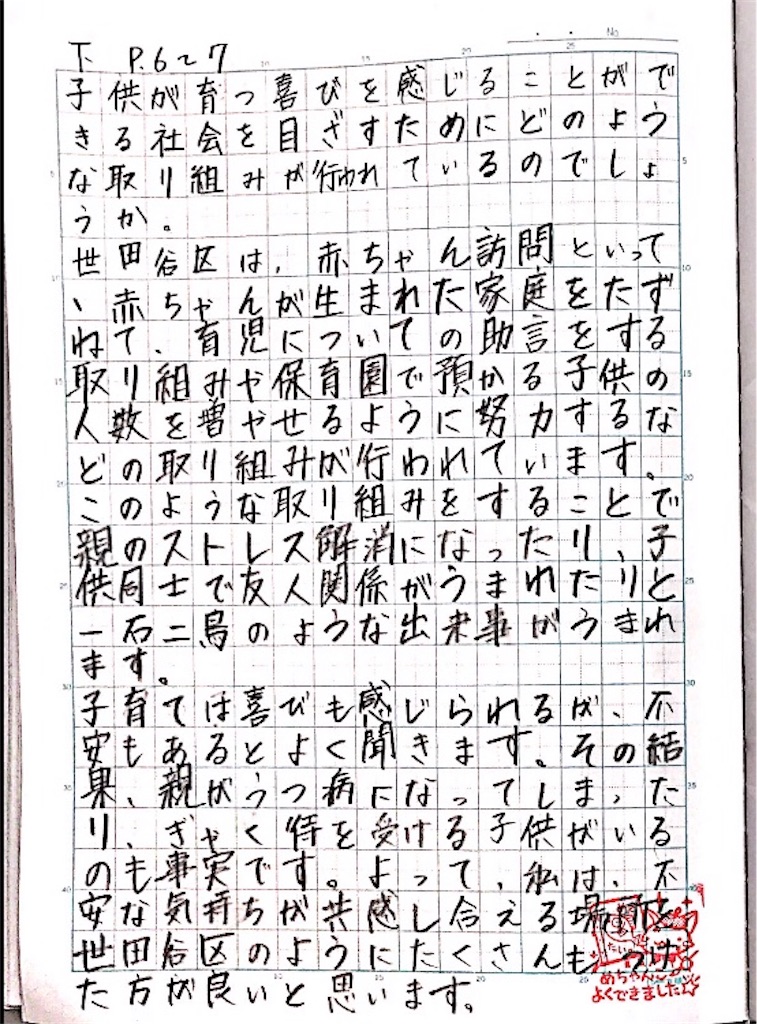 No
下 P.6〜7
子供が育つ喜びを感じることがで
きる社会を目ざすためにどのよう
な取り組みが行われているのでしょ
うか。
世田谷区は、赤ちゃん訪問といって
、赤ちゃんが生まれた家庭をたず
ねて、育児についての助言をする
取り組みや保育園で預かる子供の
人数を増やせるように努力するな
どの取り組みが行われています。
このような取り組みをすることで
親のストレス解消になったり、子
供同士で友人関係がうまれたりと
一石二鳥のような出来事がうまれ
ます。
子育ては喜びも感じられるが、不
安もあるとよく聞きます。その結
果、親がうつ病になってしまった
り、ぎゃく待を受ける子供がいる
のも事実です。よって、私は、不
安な気持ちが共感し合える場所を
世田谷区のようにたくさんもうけ
た方が良いと思います。
めちゃんこ
よくできました